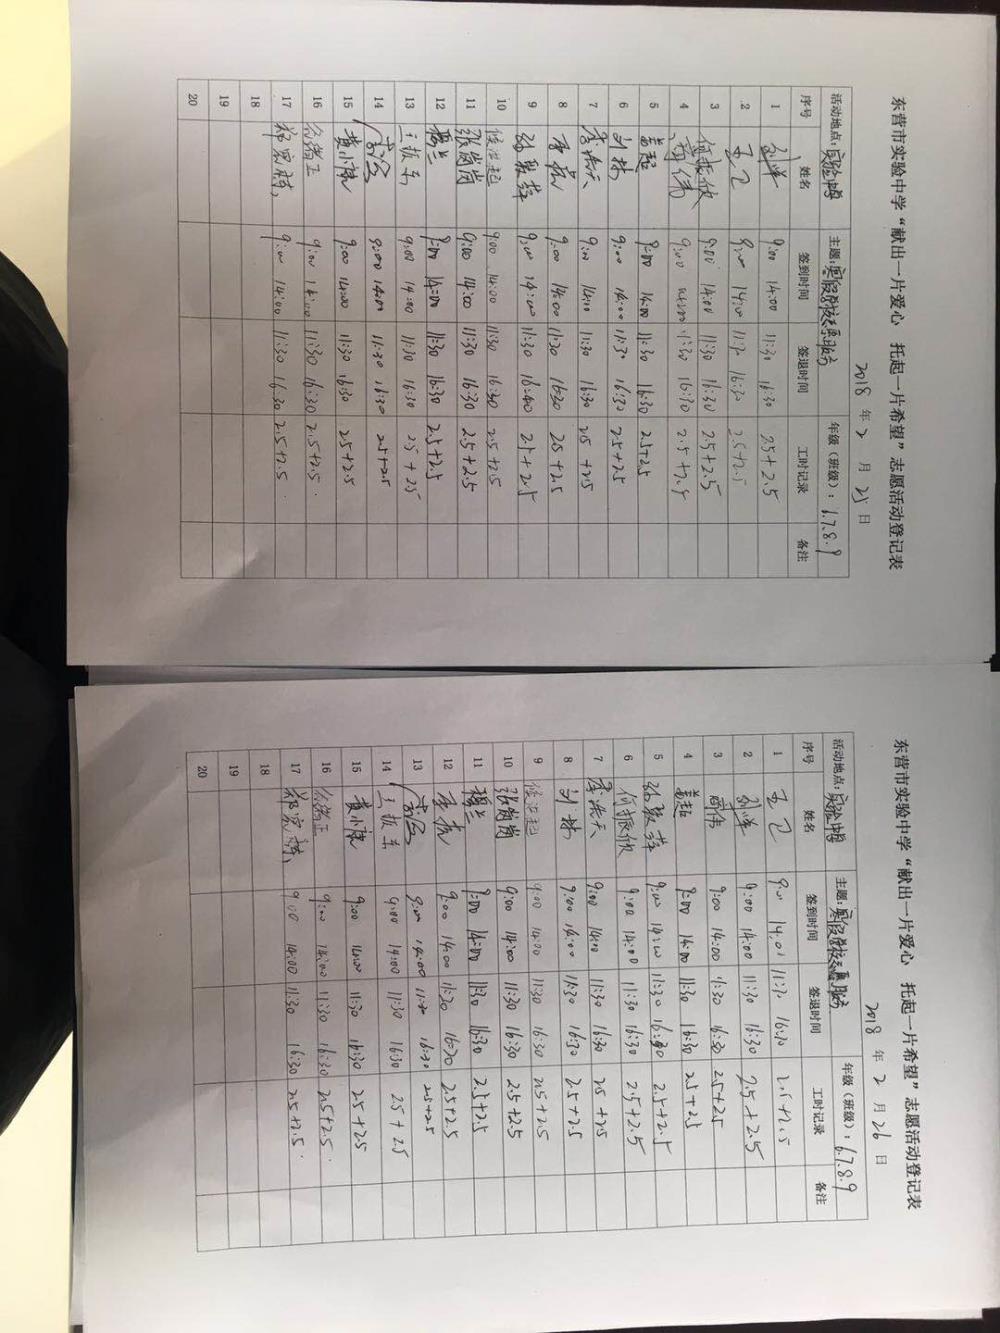 东营市实验中学“献出一片爱心 托起一片希望”志愿活动登记表
2018 年 2 月 25 日
活动地点：实验中学 主题：寒假学校志愿服务 年级（班级）：6.7.8.9
序号 姓名 签到时间 签退时间 工时记录 备注
1 9:00 14:00 11:30 16:30 2.5+2.5
2 王卫 9:00 14:00 11:30 16:30 2.5+2.5
3 何振欣 9:00 14:00 11:30 16:30 2.5+2.5
4 商伟 9:00 14:00 11:30 16:30 2.5+2.5
5 姜超 9:00 14:00 11:30 16:30 2.5+2.5
6 刘林 9:00 14:00 11:30 16:30 2.5+2.5
7 李洪天 9:00 14:00 11:30 16:30 2.5+2.5
8 9:00 14:00 11:30 16:30 2.5+2.5
9 9:00 14:00 11:30 16:40 2.5+2.5
10 9:00 14:00 11:30 16:30 2.5+2.5
11 张岗岗 9:00 14:00 11:30 16:30 2.5+2.5
12 穆兰 9:00 14:00 11:30 16:30 2.5+2.5
13 王振东 9:00 14:00 11:30 16:30 2.5+2.5
14 9:00 14:00 11:30 16:30 2.5+2.5
15 黄小辣 9:00 14:00 11:30 16:30 2.5+2.5
16 9:00 14:00 11:30 16:30 2.5+2.5
17 9:00 14:00 11:30 16:30 2.5+2.5
18
19
20
东营市实验中学“献出一片爱心 托起一片希望”志愿活动登记表
2018 年 2 月 26 日
活动地点：实验中学 主题：寒假学校志愿服务 年级（班级）：6.7.8.9
序号 姓名 签到时间 签退时间 工时记录 备注
1 王卫 9:00 14:00 11:30 16:30 2.5+2.5
2 9:00 14:00 11:30 16:30 2.5+2.5
3 商伟 9:00 14:00 11:30 16:30 2.5+2.5
4 姜超 9:00 14:00 11:30 16:30 2.5+2.5
5 9:00 14:00 11:30 16:30 2.5+2.5
6 何振欣 9:00 14:00 11:30 16:30 2.5+2.5
7 李洪天 9:00 14:00 11:30 16:30 2.5+2.5
8 刘林 9:00 14:00 11:30 16:30 2.5+2.5
9 9:00 14:00 11:30 16:30 2.5+2.5
10 张岗岗 9:00 14:00 11:30 16:30 2.5+2.5
11 穆兰 9:00 14:00 11:30 16:30 2.5+2.5
12 9:00 14:00 11:30 16:30 2.5+2.5
13 9:00 14:00 11:30 16:30 2.5+2.5
14 王振东 9:00 14:00 11:30 16:30 2.5+2.5
15 黄小辣 9:00 14:00 11:30 16:30 2.5+2.5
16 9:00 14:00 11:30 16:30 2.5+2.5
17 9:00 14:00 11:30 16:30 2.5+2.5
18
19
20